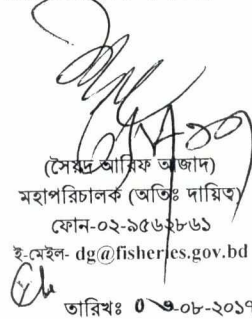 (সৈয়দ আরিফ আজাদ)
মহাপরিচালক (অতিঃ দায়িত্ব)
ফোন-০২-৯৫৬২৮৬১
ই-মেইল- dg@fisheries.gov.bd
তারিখঃ -০৮-২০১৭